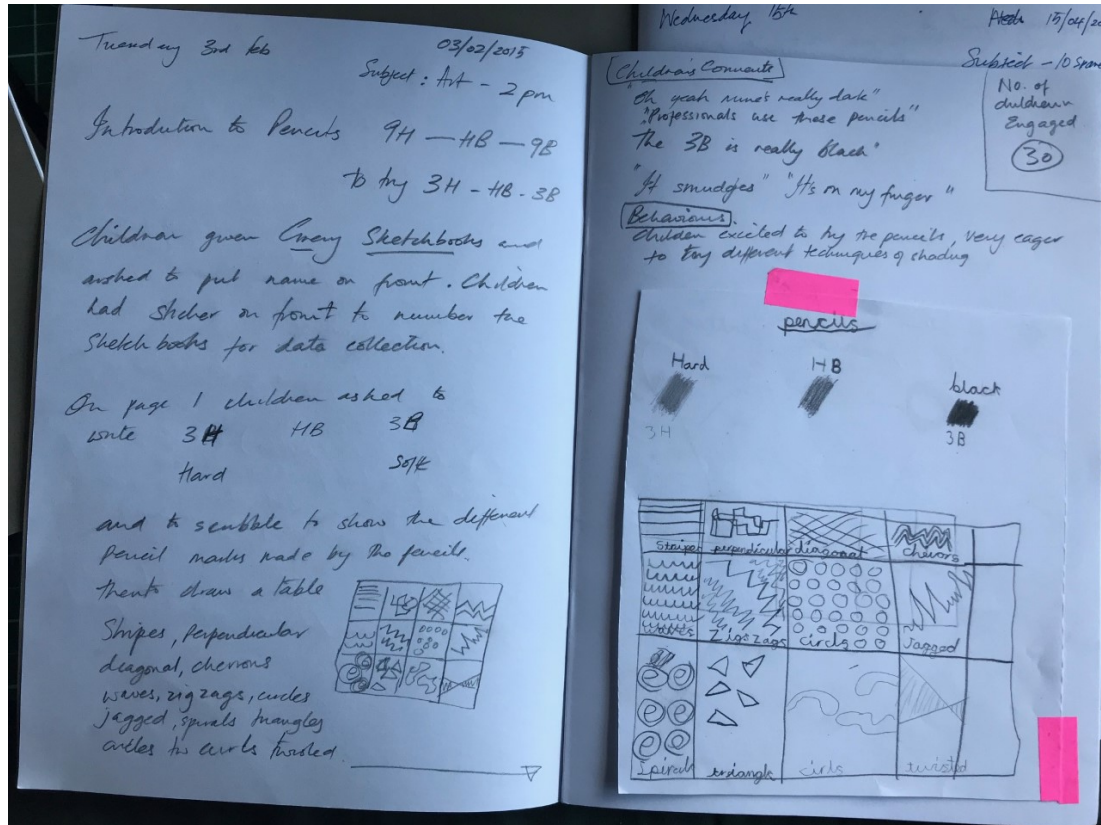 Tuesday 3rd feb 03/02/2015
Subject : Art - 2pm
Introdution to Pencils 9H — HB — 9B
to try 3H - HB - 3B
Children given Sketchbooks and
asked to put name on front. Children
had sticker on front to number the
Sketch books for data collection.
On page 1 children asked to
write 3H HB 3B
Hard Soft
and to scribble to show the different
pencil marks made by the pencils.
then to draw a table
Stripes, perpendicular
diagonal, chevrons
waves, zigzags, circles
jagged, spirals triangles
circles to curls twisted.
Wednesday 15th 15/04/20
Subject - 10
No. of
children
Engaged
30
Children's Comments
"Oh yeah mine's really dark"
"Professionals use these pencils"
The 3B is really black"
"It smudges" "It's on my finger"
Behaviours.
Children excited to try the pencils, very eager
to try different techniques of shading
pencils
Hard HB black
3H 3B
Stripes perpendicular diagonal chevors
waves Zigszags circls Jagged
Spirals triangls cirls twisted